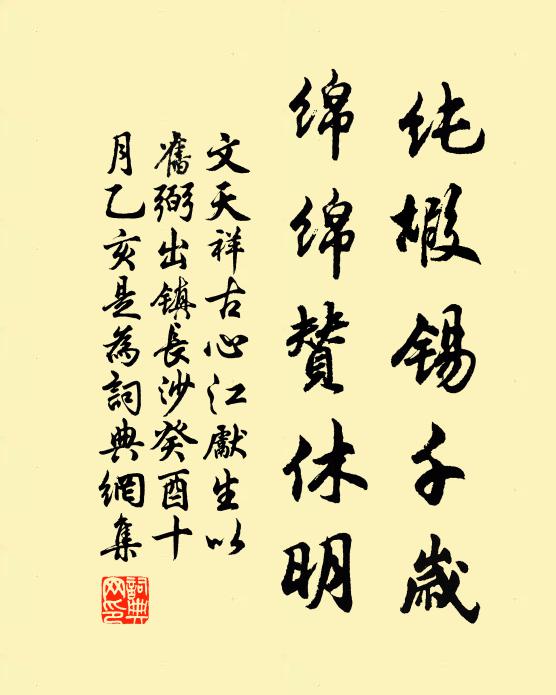 纯椵锡千歲
绵绵赞休明
文天祥古心江獻生以
舊弼出镇長沙癸酉十
月乙亥是為詞典網集
詞典网印